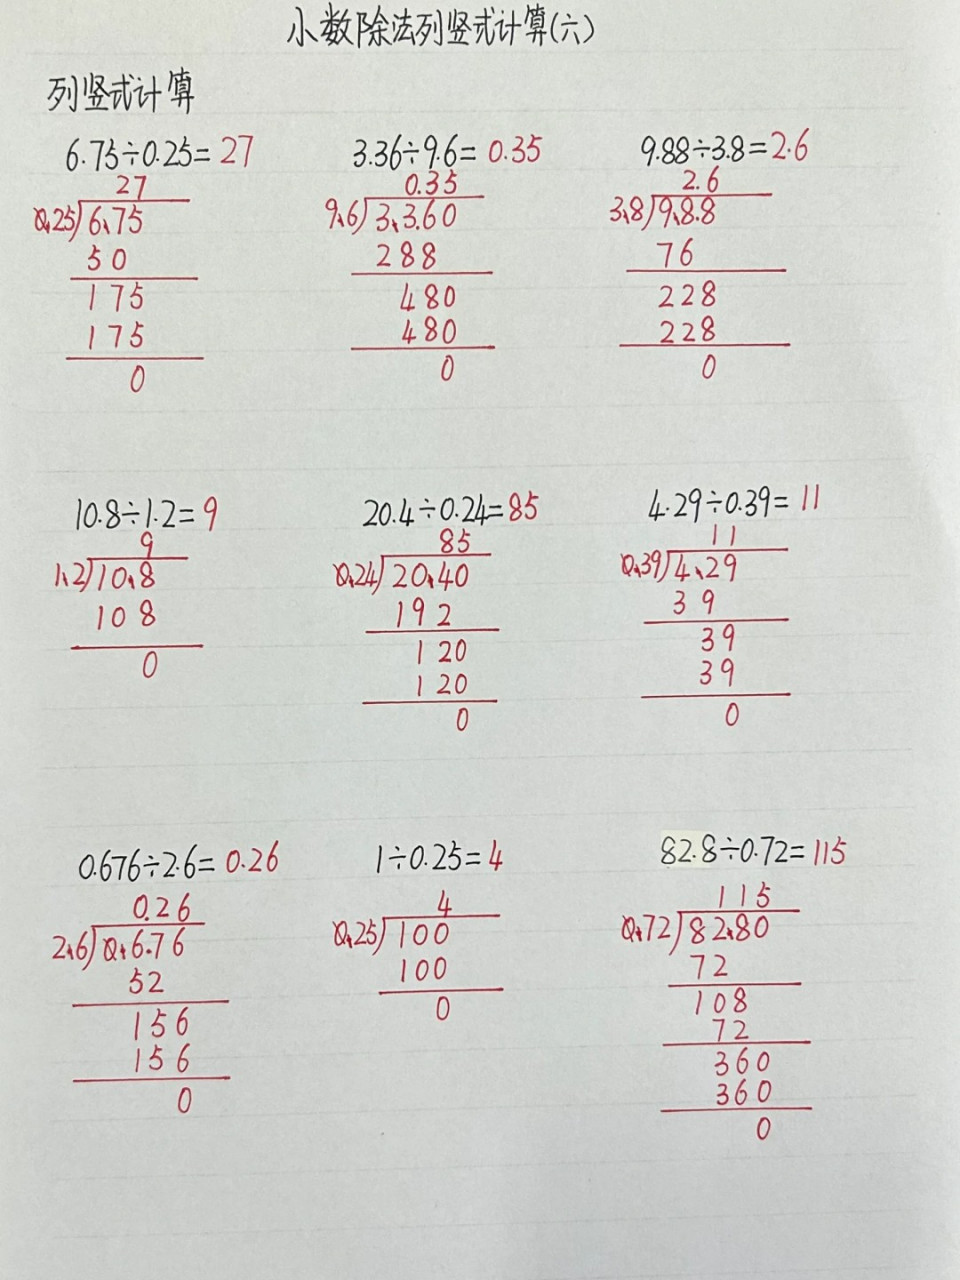 小数除法列竖式计算(六)
列竖式计算
6.75÷0.25=27
27
0.25)6.75
50
175
175
0
3.36÷9.6=0.35
0.35
9.6)3.360
288
480
480
0
9.88÷3.8=2.6
2.6
3.8)9.8.8
76
228
228
0
10.8÷1.2=9
9
1.2)10.8
108
0
20.4÷0.24=85
85
0.24)20.40
192
120
120
0
4.29÷0.39=11
11
0.39)4.29
39
39
39
0
0.676÷2.6=0.26
0.26
2.6)0.6.76
52
156
156
0
1÷0.25=4
4
0.25)100
100
0
82.8÷0.72=115
115
0.72)82.80
72
108
72
360
360
0